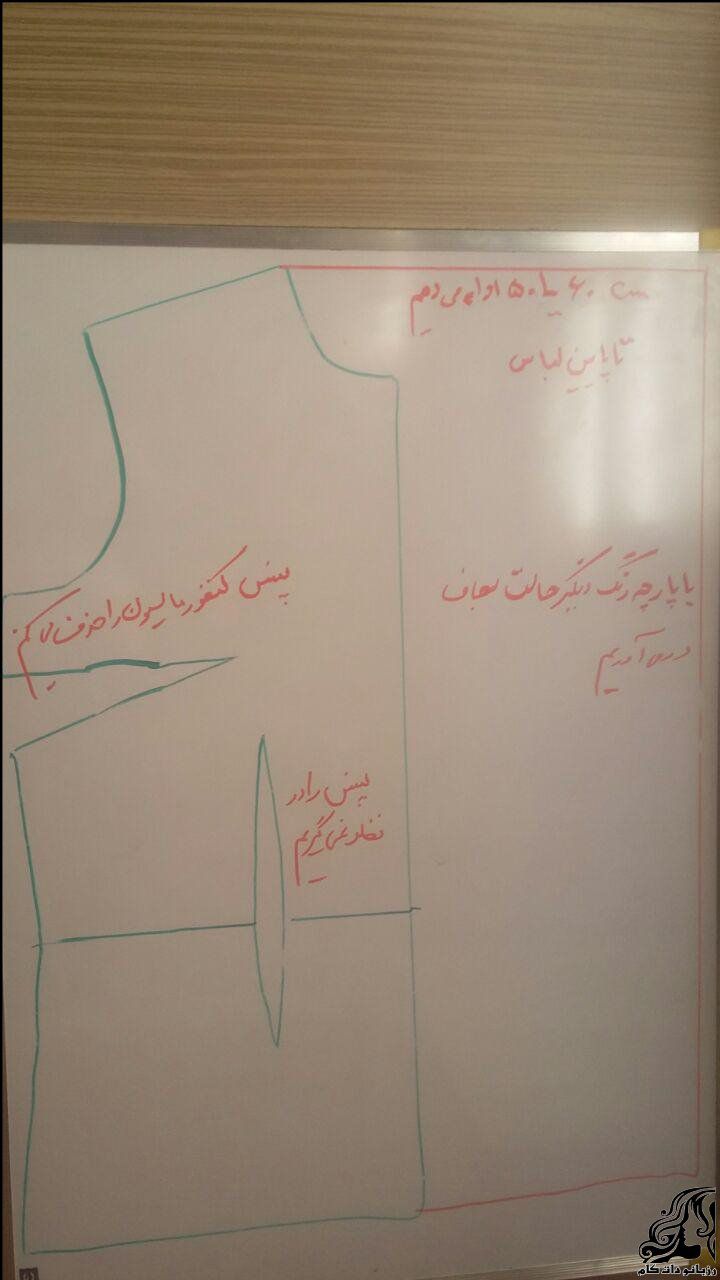 ۶۰ تا ۵۰ cm ادامه می دهیم
تا پایین لباس
با پارچه رنگ دیگر حالت سجاف
در می آوریم
پنس را حذف می کنیم
پنس را در
نظر نمی گیریم
وزبانو دات کام